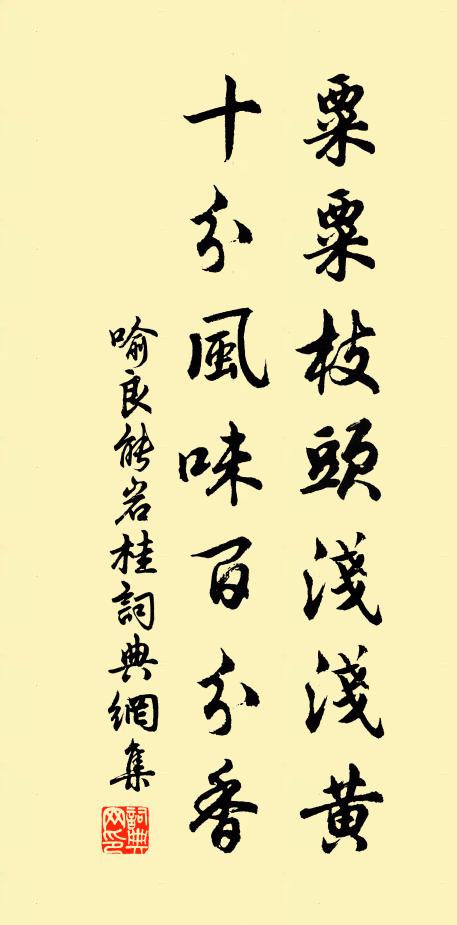 粟粟枝頭淺淺黃
十分風味百分香
喻良能岩桂詞典網集
詞典網印